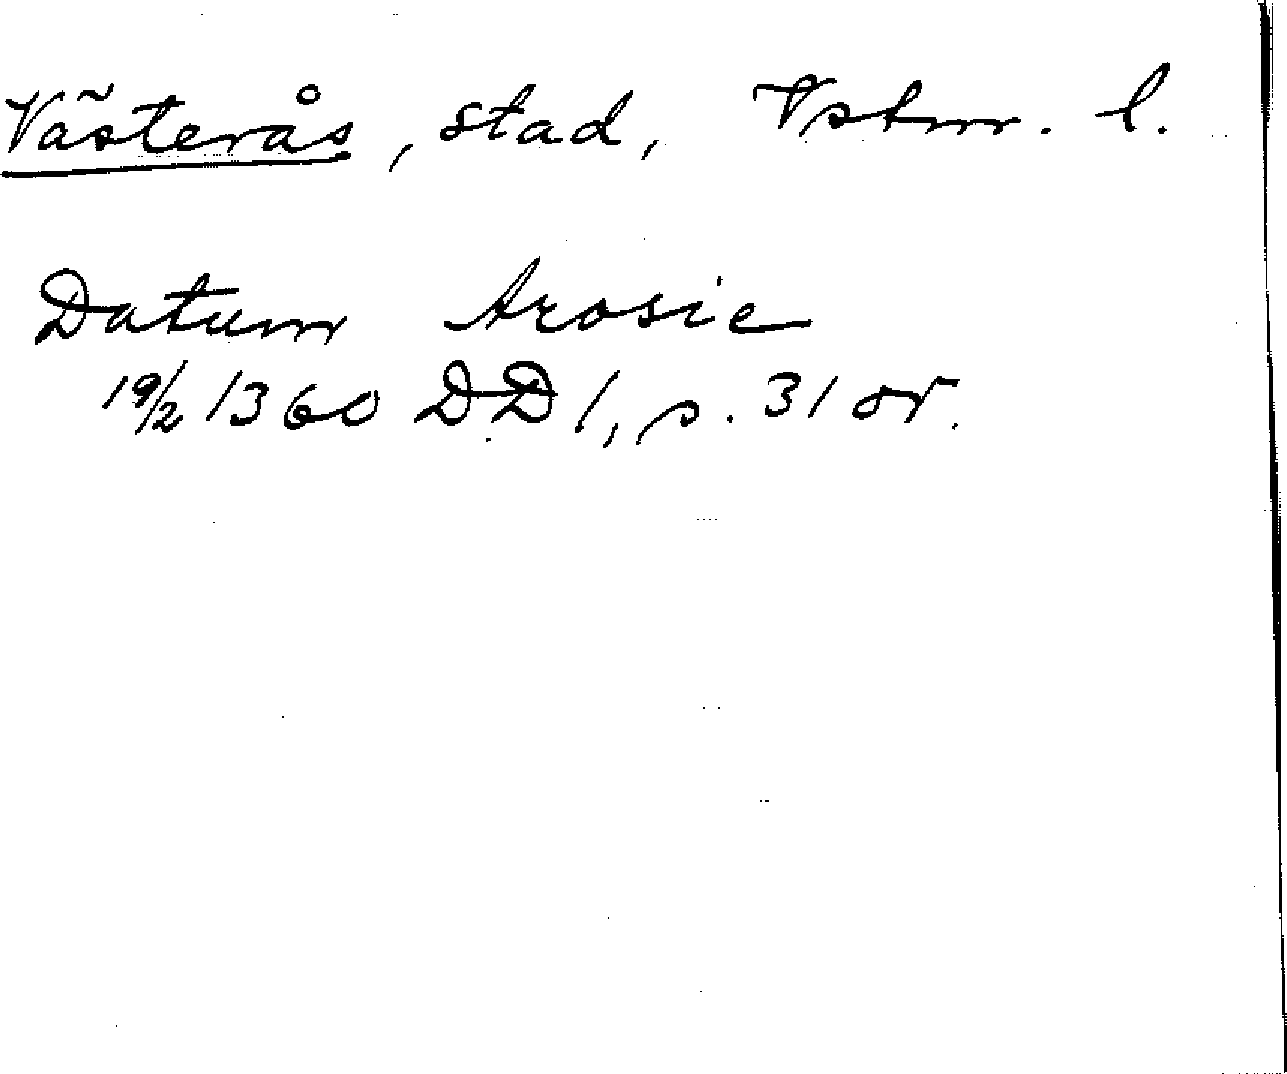 Västerås, stad, Vstm. l.
Datum Arosie
19/2 1360 DD 1, s. 31 or.